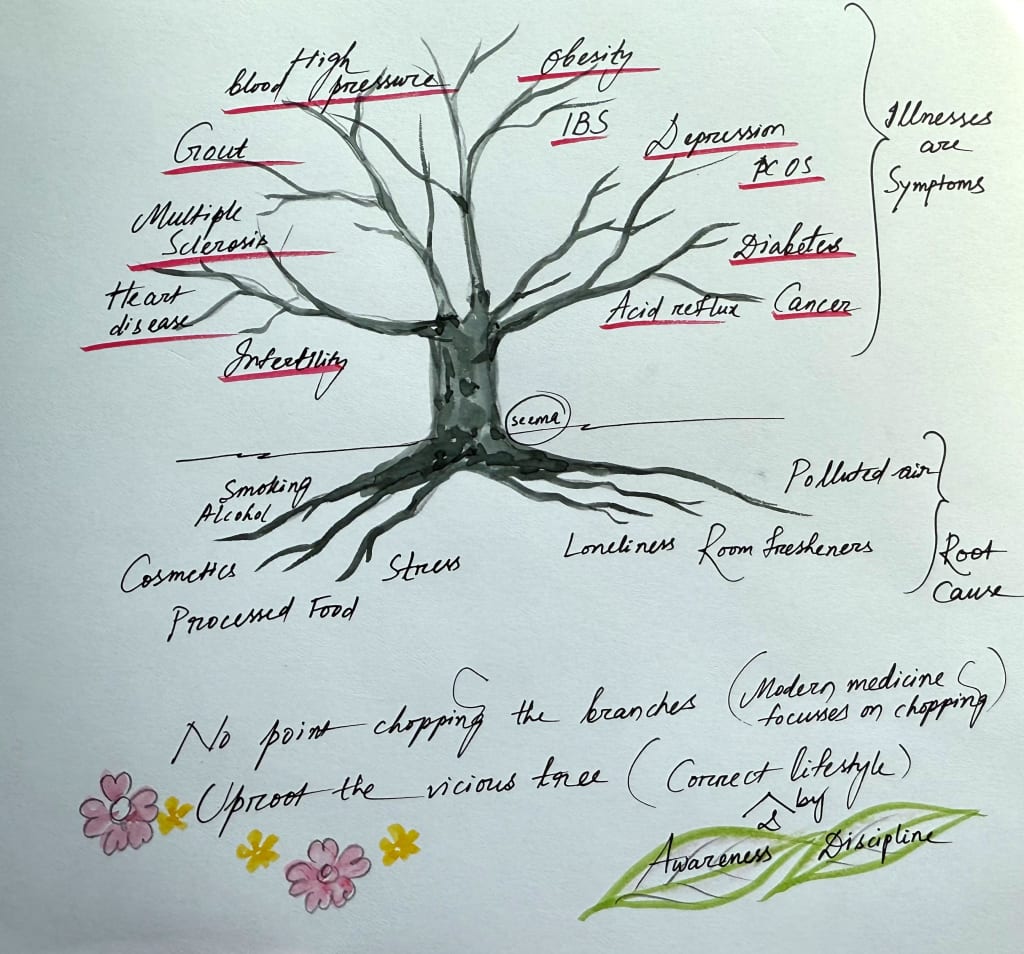 High
Blood pressure
Obesity
IBS
Gout
Depression
PCOS
Multiple
Sclerosis
Diabetes
Heart
disease
Acid reflux
Cancer
Infertility
Illnesses
are
Symptoms
seema
Smoking
Alcohol
Polluted air
Cosmetics
Stress
Loneliness
Room fresheners
Processed Food
Root
Cause
No point chopping the branches (Modern medicine
focusses on chopping)
Uproot the vicious tree (Correct lifestyle)
by
Awareness & Discipline